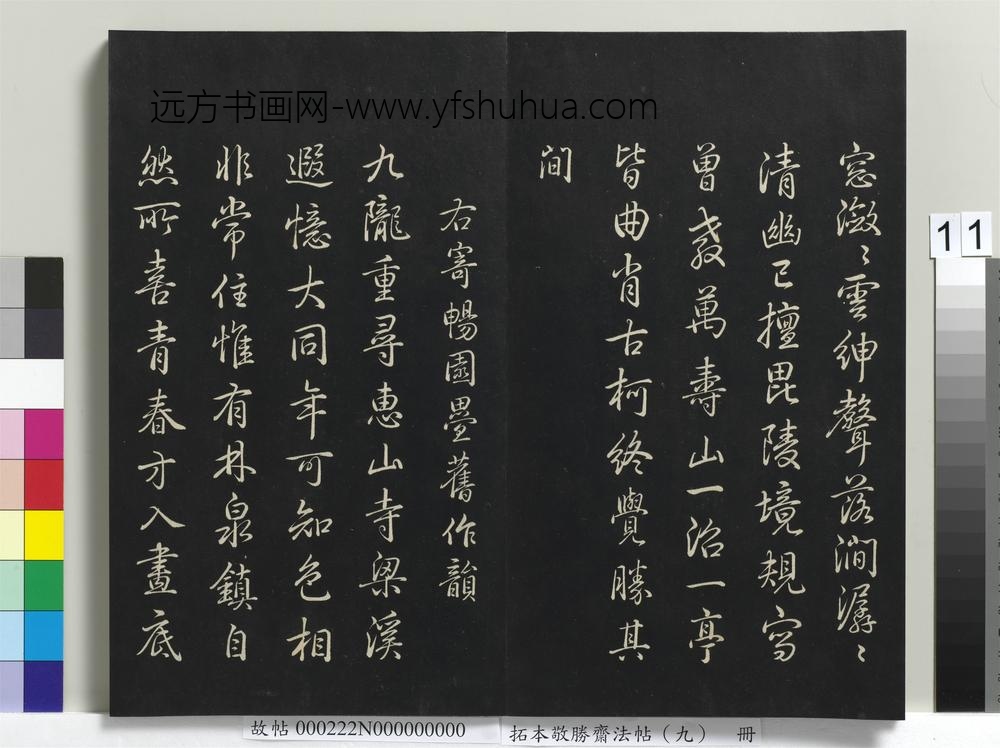 远方书画网-www.yfshuhua.com
窓瀲〻雲紳聲落澗潺〻
清幽已擅毘陵境規寫
曾教萬壽山一沼一亭
皆曲肖古柯終覺勝其
間
右寄暢園疊舊作韻
九隴重尋惠山寺梁溪
遐憶大同年可知色相
非常住惟有林泉鎮自
然所喜青春才入畫底
11
故帖 000222N000000000
拓本敬勝齋法帖（九） 冊